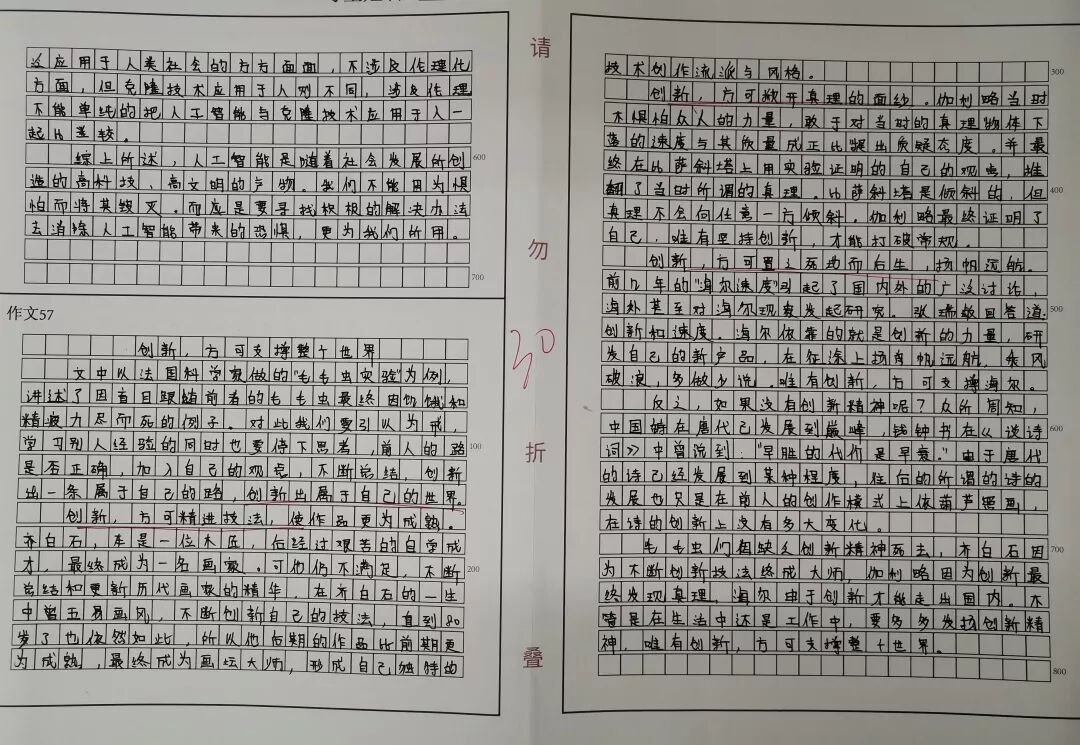 这应用于人类社会的方方面面，不涉及伦理化
方面，但克隆技术应用于人则不同，涉及伦理
不能单纯的把人工智能与克隆技术应用于人一
起比差较。
综上所述，人工智能是随着社会发展所创 600
造的高科技、高文明的产物。我们不能因为惧
怕而将其毁灭。而应是要寻找积极的解决办法
去消除人工智能带来的恐惧，更为我们所用。
700
作文57
创新，方可支撑整个世界
文中以法国科学家做的"毛毛虫实验"为例，
讲述了因盲目跟随前者的毛毛虫最终因饥饿和
精疲力尽而死的例子。对此我们要引以为戒，
学习别人经验的同时也要停下思考，前人的路 100
是否正确，加入自己的观点，不断总结，创新
出一条属于自己的路，创新出属于自己的世界。
创新，方可精进技法，使作品更为成熟。
齐白石，本是一位木匠，后经过艰苦的自学成
才，最终成为一名画家。可他仍不满足，不断 200
总结和更新历代画家的精华，在齐白石的一生
中曾五易画风，不断创新自己的技法，直到80
岁了也依然如此，所以他后期的作品比前期更
为成熟，最终成为画坛大师，形成自己独特的
请
勿
折
叠
30
技术创作流派与风格。 300
创新，方可掀开真理的面纱。伽利略当时
不惧怕众人的力量，敢于对当时的真理物体下
落的速度与其质量成正比提出质疑态度。并最
终在比萨斜塔上用实验证明的自己的观点，推
翻了当时所谓的真理。比萨斜塔是倾斜的，但 400
真理不会向任意一方倾斜。伽利略最终证明了
自己，唯有坚持创新，才能打破常规。
创新，方可置之死地而后生，扬帆远航。
前几年的"海尔速度"引起了国内外的广泛讨论，
海外甚至对海尔现象发起研究。张瑞敏回答道： 500
创新和速度。海尔依靠的就是创新的力量，研
发自己的新产品，在征途上扬帆远航，乘风
破浪，多做少说。唯有创新，方可支撑海尔。
反之，如果没有创新精神呢？众所周知，
中国诗在唐代已发展到巅峰，钱钟书在《谈诗 600
词》中曾说到："早胜的代价是早衰。"由于唐代
的诗已经发展到某种程度，往后的所谓的诗的
发展也只是在前人的创作模式上依葫芦画画，
在诗的创新上没有多大变化。
毛毛虫们因缺乏创新精神死去，齐白石因 700
为不断创新技法终成大师，伽利略因为创新最
终发现真理，海尔由于创新才能走出国内。不
管是在生活中还是工作中，要多多发扬创新精
神，唯有创新，方可支撑整个世界。
800